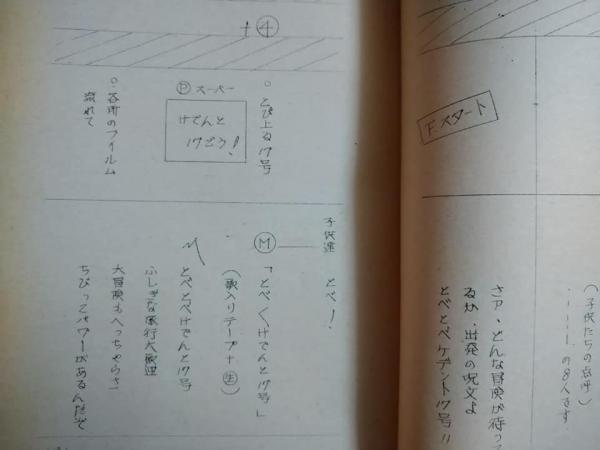 （子供たちの点呼）
……の8人です。
F.スタート
さァ、どんな冒険が待って
るか、出発の呪文よ
とべとべケデント17号!!
→④
○とび上る17号
Ⓟスーパー
けでんと
17ごう!
○各所のフィルム
流れて
子供達 とべー!
Ⓜ 「とべとべけでんと17号」
（歌入りテープ＋生）
とべとべけでんと17号
ふしぎな旅行大歓迎
大冒険もへっちゃらさ
ちびっこパワーがあるんだぞ